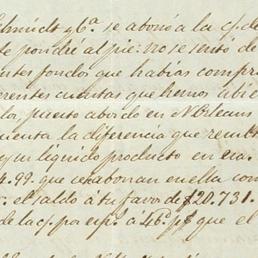 chmidt y Ca. se abonó a la c/. de
le pondré al pie: no se sentó de
ntes fondos que habías compr
erentes cuentas que hemos abie
lo, puesto abordo en N. Orleans
uenta la diferencia que result
cuyo líquido producto en esa.
4.99. que se abonan en ella con
. el saldo á tu favor de $20.731.
de la c/. por esp. á 46 que el